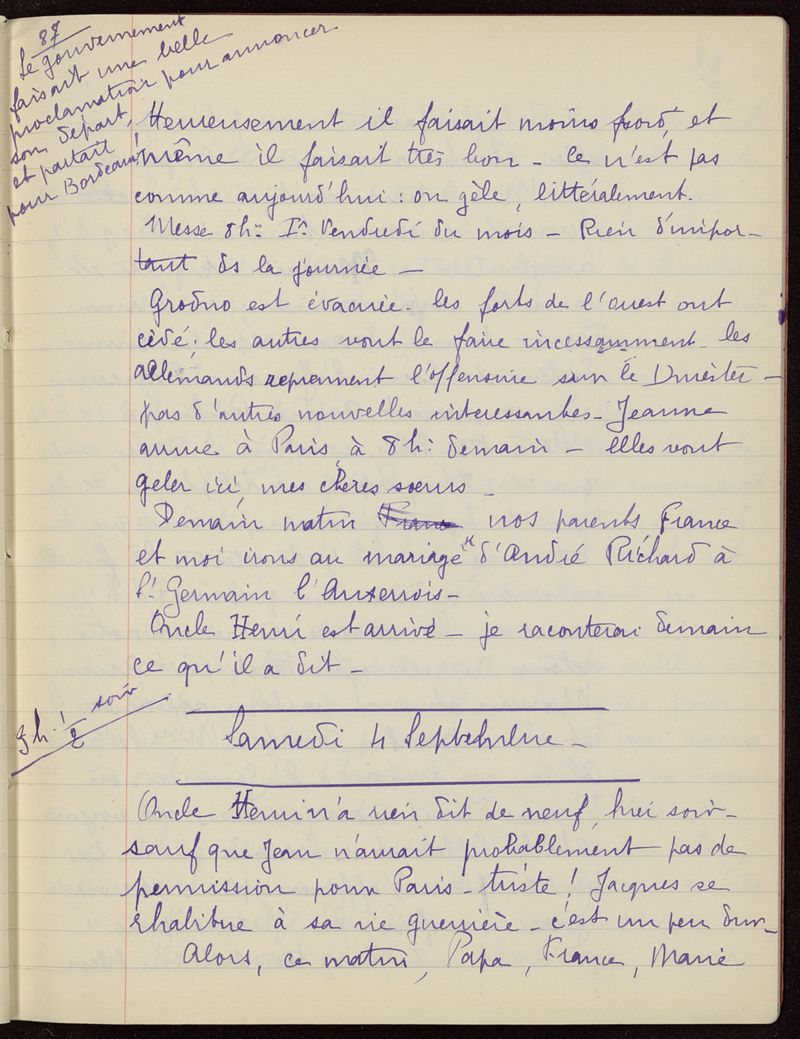 87
Le gouvernement
faisait une belle
proclamation pour annoncer
son départ,
et partait
pour Bordeaux!
Heureusement il faisait moins froid, et
même il faisait très bon - ce n'est pas
comme aujourd'hui : on gèle, littéralement.
Messe 8h: 1r Vendredi du mois - Rien d'impor-
tant ds la journée -
Grodno est évacuée. les forts de l'ouest ont
cédé; les autres vont le faire incessamment. les
allemands reprennent l'offensive sur le Dniester -
pas d'autres nouvelles interessantes - Jeanne
arrive à Paris à 8h: demain - elles vont
geler ici, mes chères soeurs -
Demain matin France nos parents France
et moi irons au mariage d'André Richard à
St Germain l'Auxerrois -
Oncle Henri est arrivé - je raconterai demain
ce qu'il a dit -
9h: 1/2 soir
Samedi 4 Septembre -
Oncle Henri n'a rien dit de neuf, hier soir -
sauf que Jean n'aurait probablement pas de
permission pour Paris - triste! Jacques se
rhabitue à sa vie guerrière - c'est un peu dur -
Alors, ce matin, Papa, France, Marie